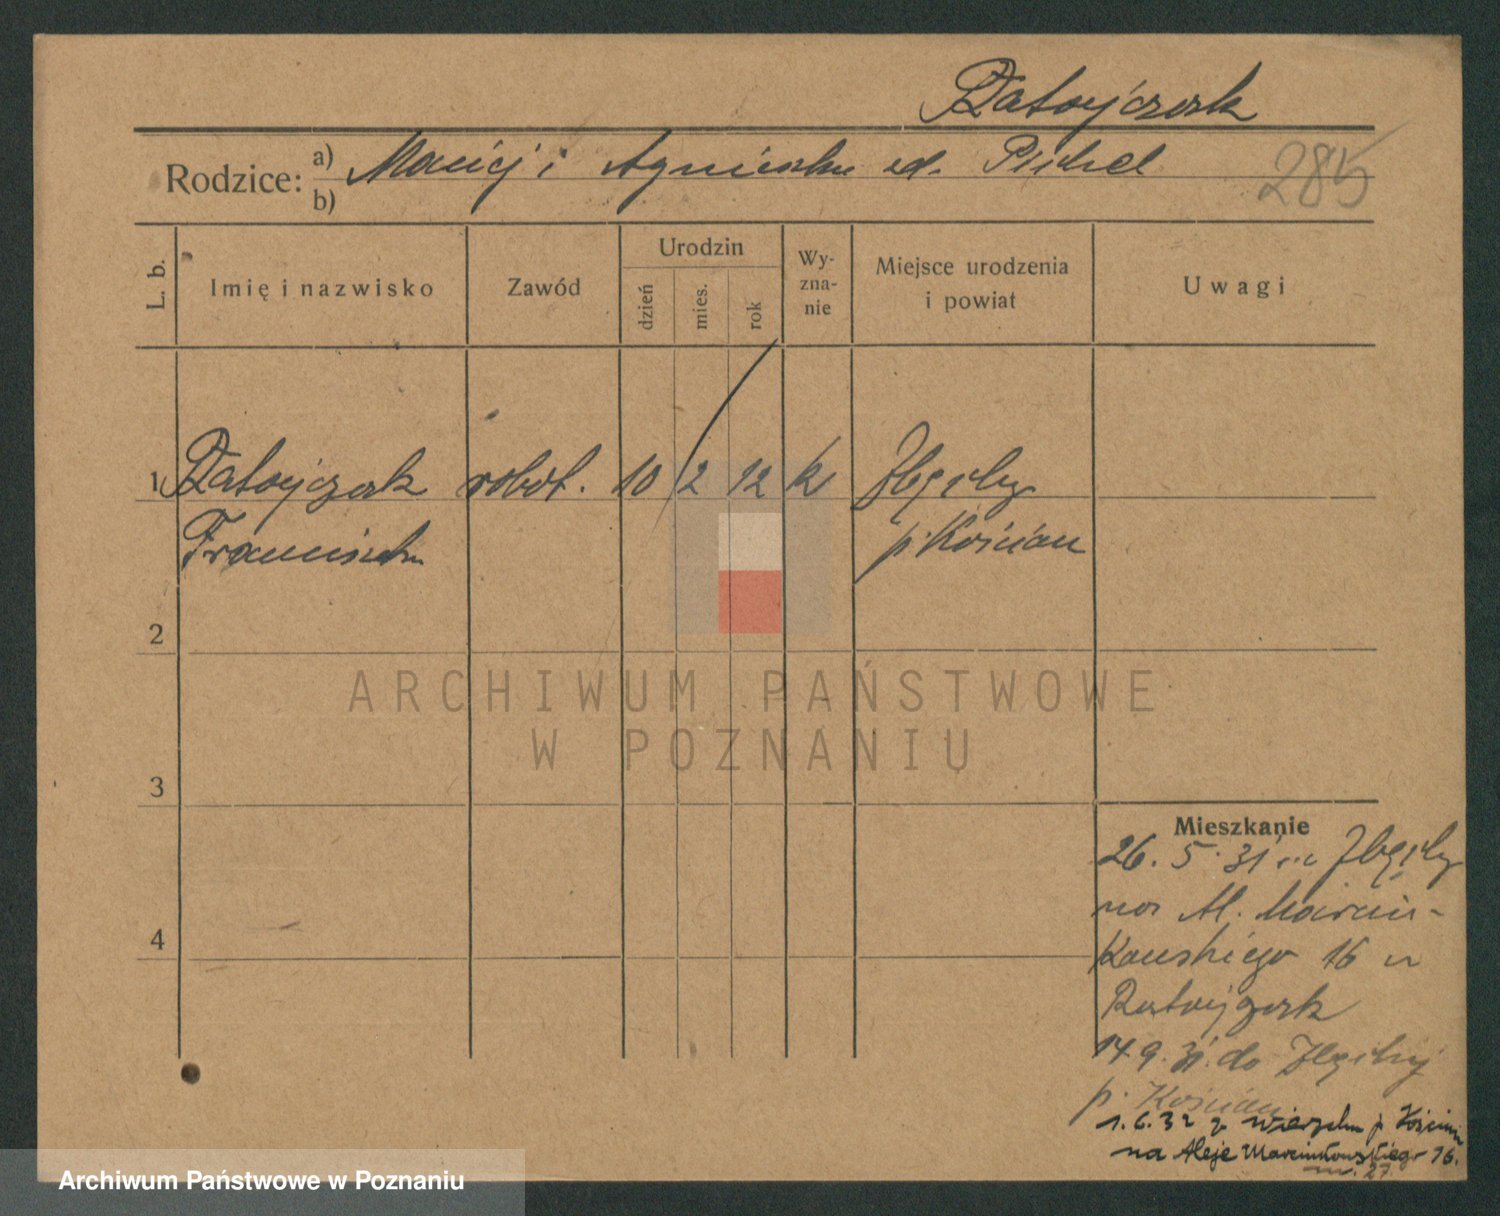 Ratajczak
Rodzice: a) Maciej i Agnieszka zd.
b)
285
L. b.
Imię i nazwisko
Zawód
Urodzin
dzień
mies.
rok
Wy-
zna-
nie
Miejsce urodzenia
i powiat
Uwagi
1 Ratajczak robot. 10 2 12 k Zbęchy
Franciszka p. Kościan
2
3
4
Mieszkanie
26. 5. 31 z Zbęchy
na Al. Marcin-
kowskiego 16 u
Ratajczak
14. 9. 31. do Zbęchy
p. Kościan
1. 6. 32 z p. Kościan
na Aleje Marcinkowskiego 16.
m. 27.
ARCHIWUM PAŃSTWOWE
W POZNANIU
Archiwum Państwowe w Poznaniu